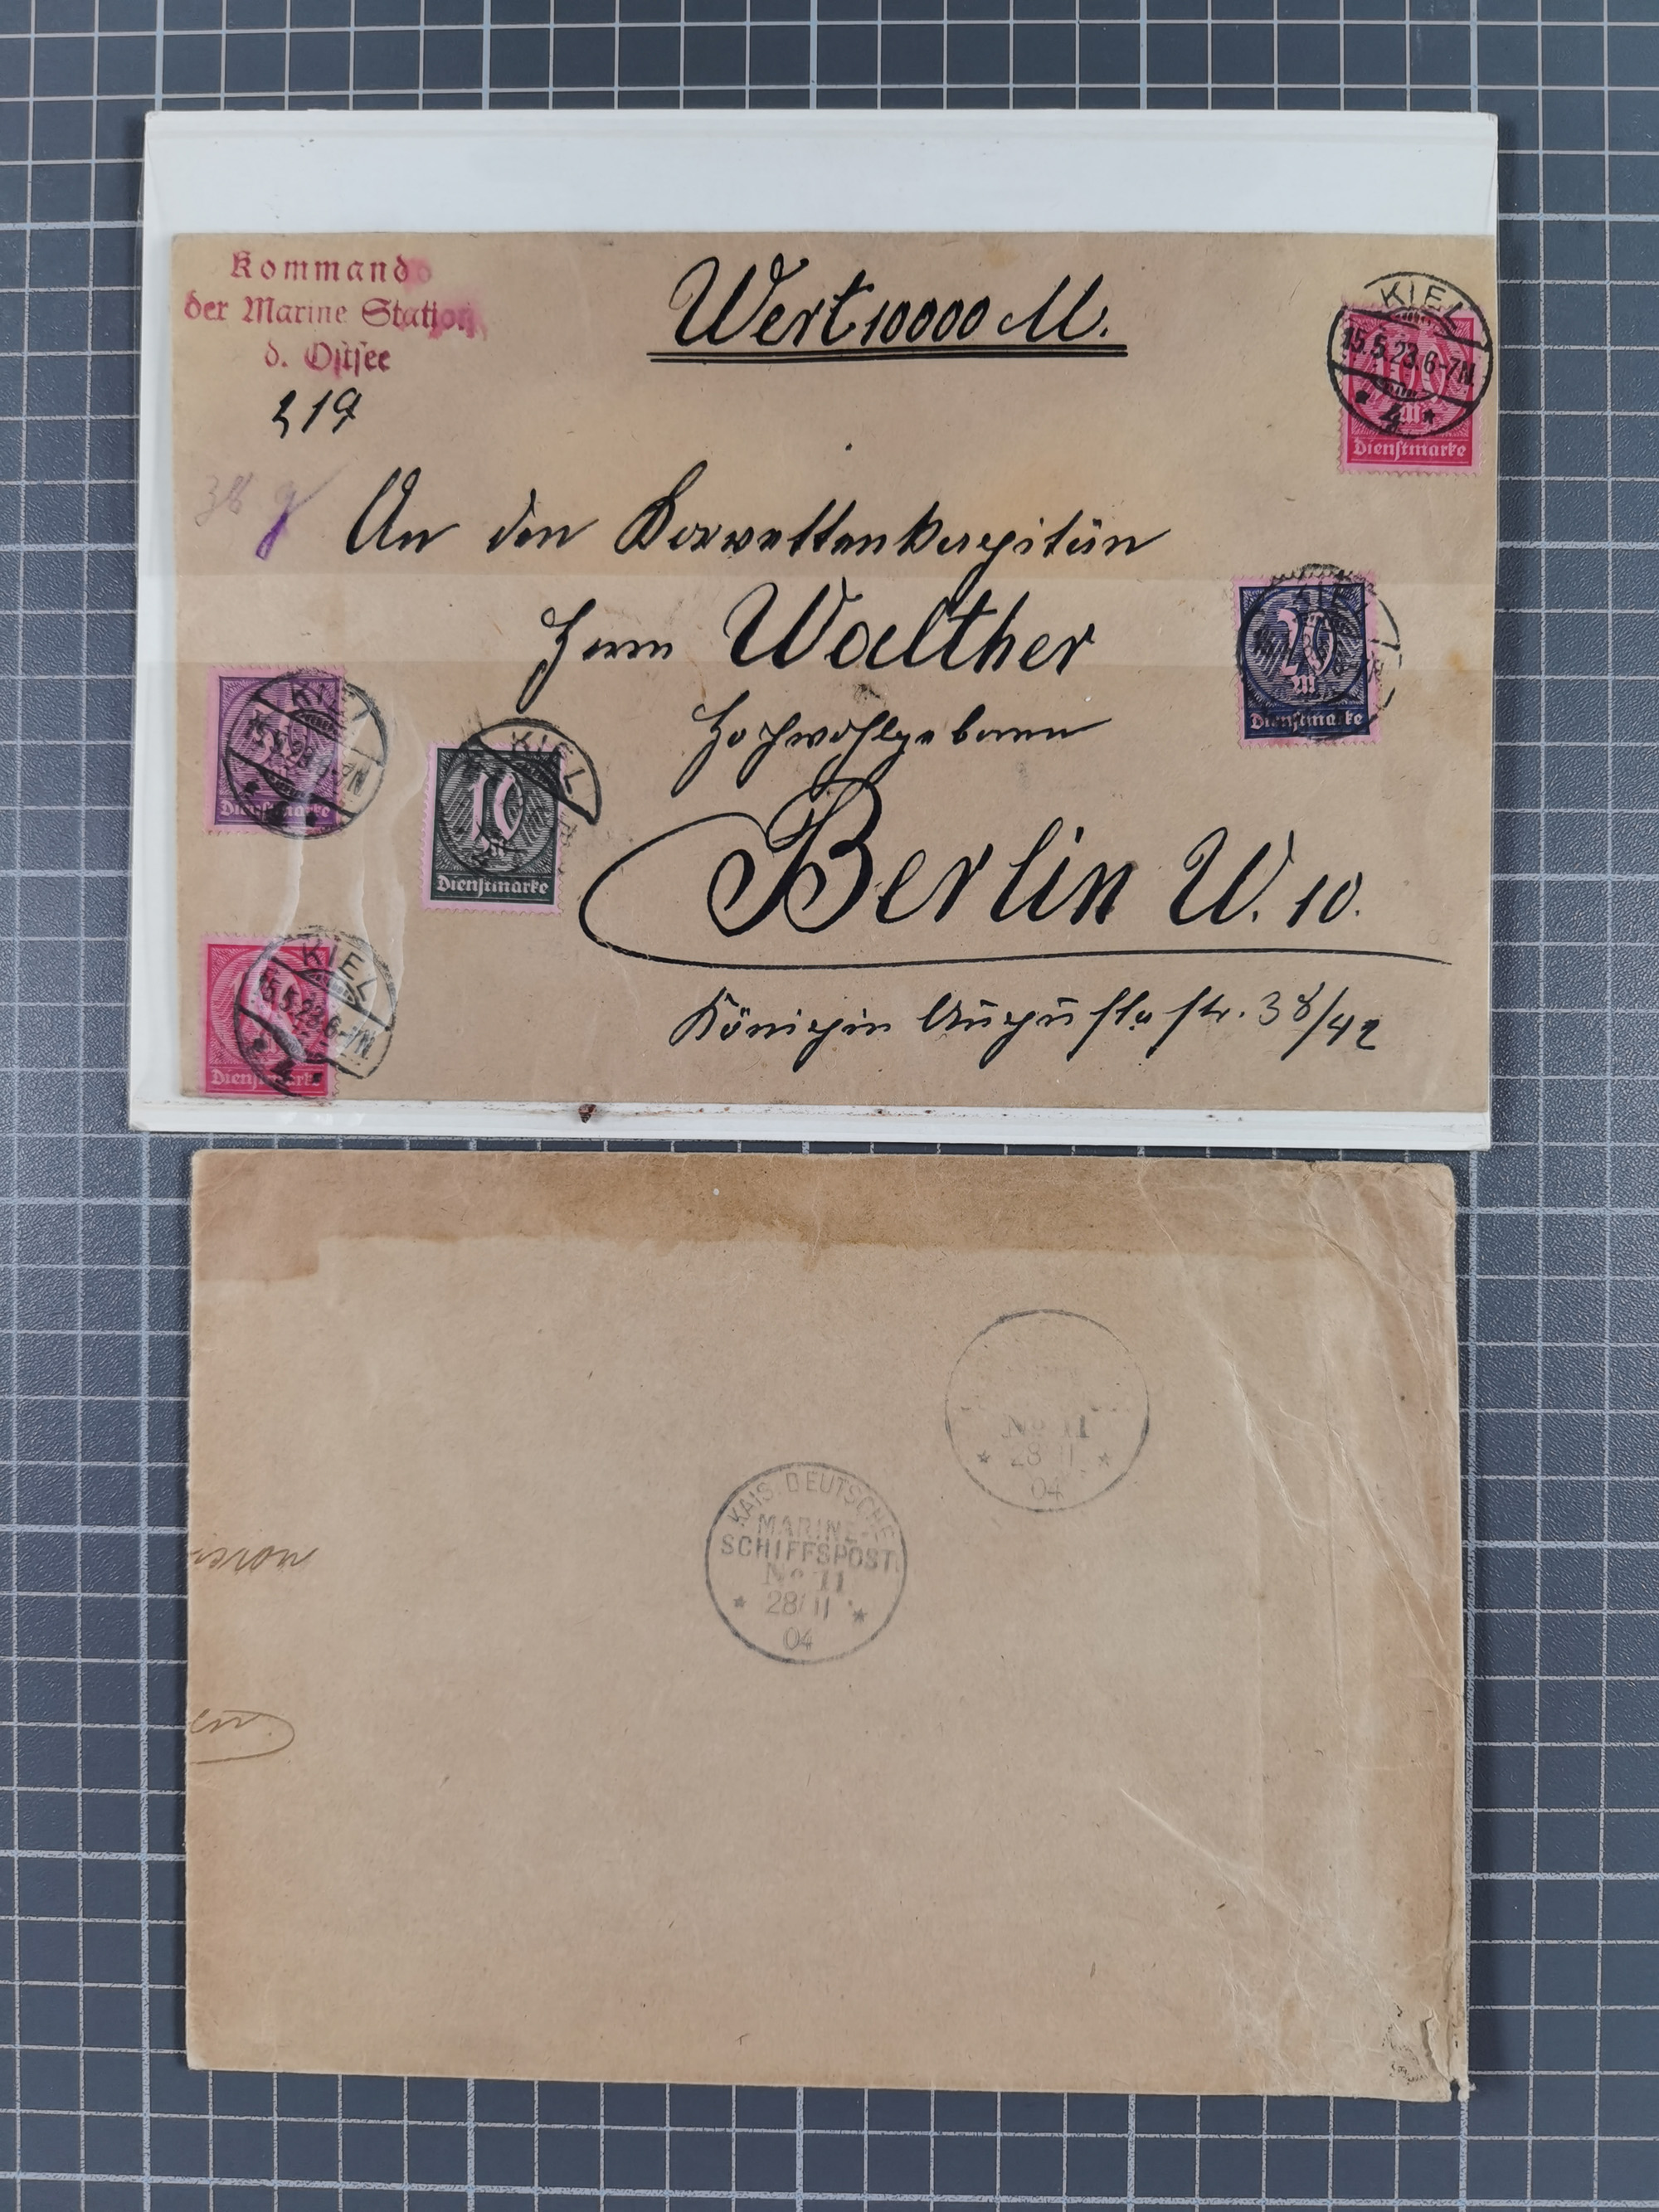 Kommando
der Marine Station
d. Ostsee
219
Wert 10000 M.
KIEL
15.5.23.6-7N.
* 4 *
100
M
Dienstmarke
38 g
An den Korvettenkapitän
Herrn Walther
Hochwohlgeboren
Berlin W. 10.
Königin Augusta str. 38/42
KIEL
20
M
Dienstmarke
KIEL
15.5.23
Dienstmarke
KIEL
10
M
Dienstmarke
KIEL
15.5.23.6-7N
4
Dienstmarke
No 11
* 28 11 *
04
KAIS. DEUTSCHE
MARINE-
SCHIFFSPOST.
No 11
* 28/11 *
04
en.